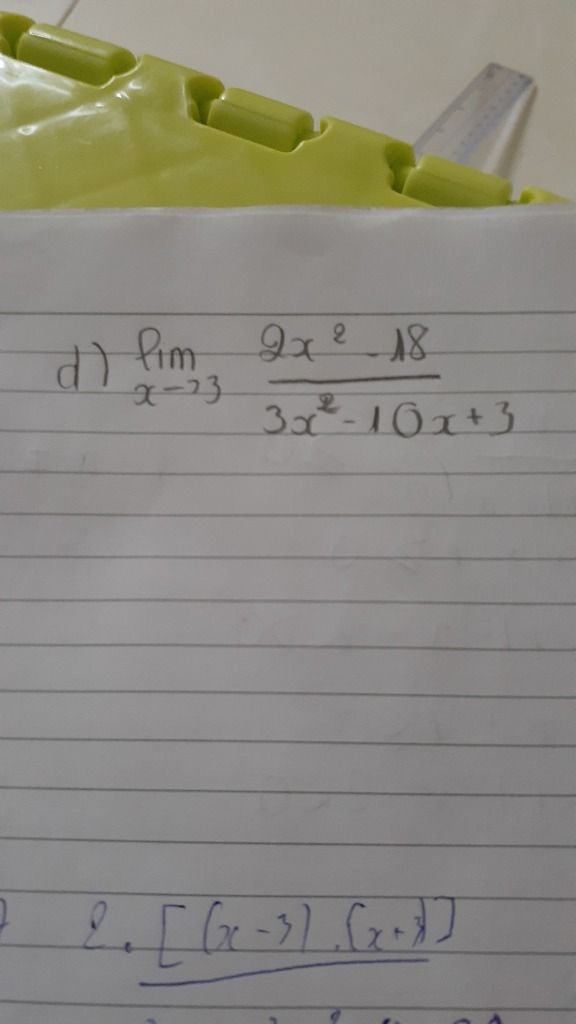 d) lim 2x² - 18
x→3 3x² - 10x + 3
2. [(x-3).(x+3)]